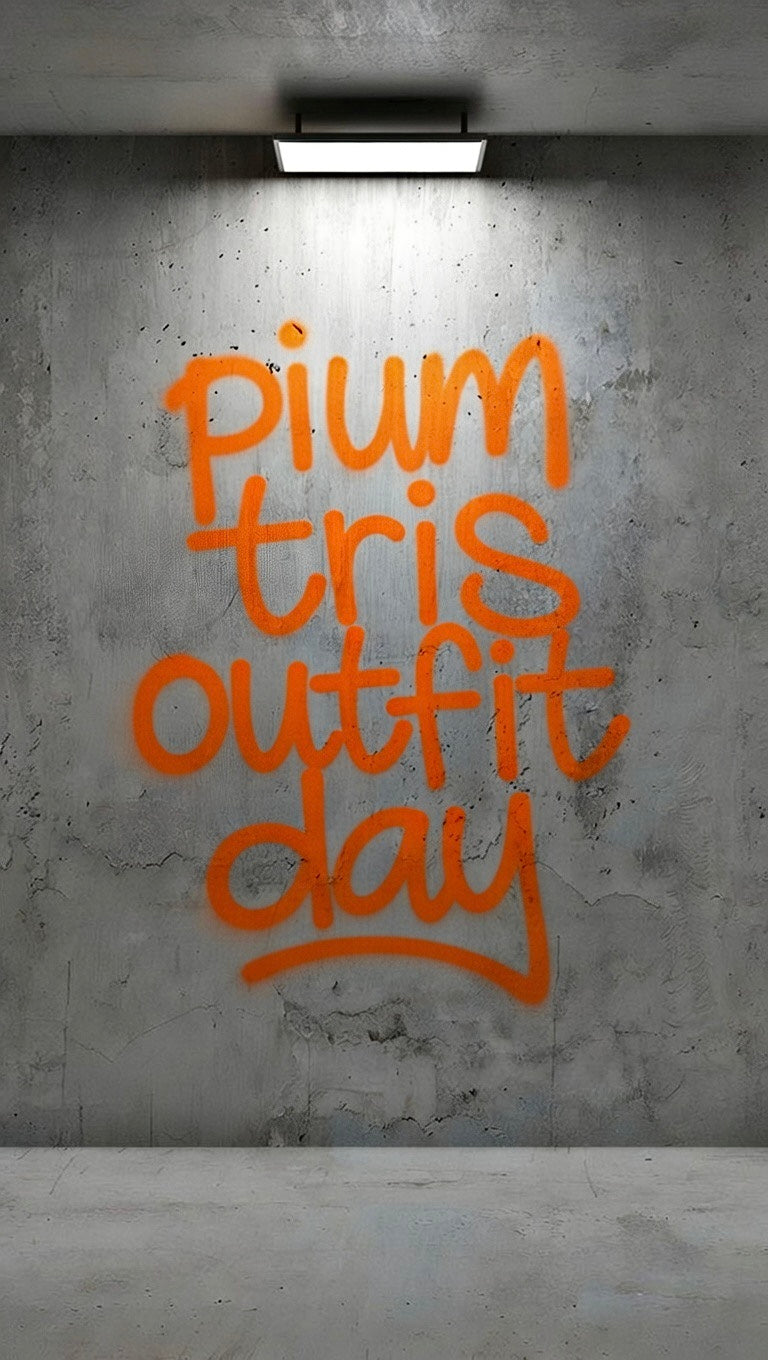 pium
tris
outfit
day